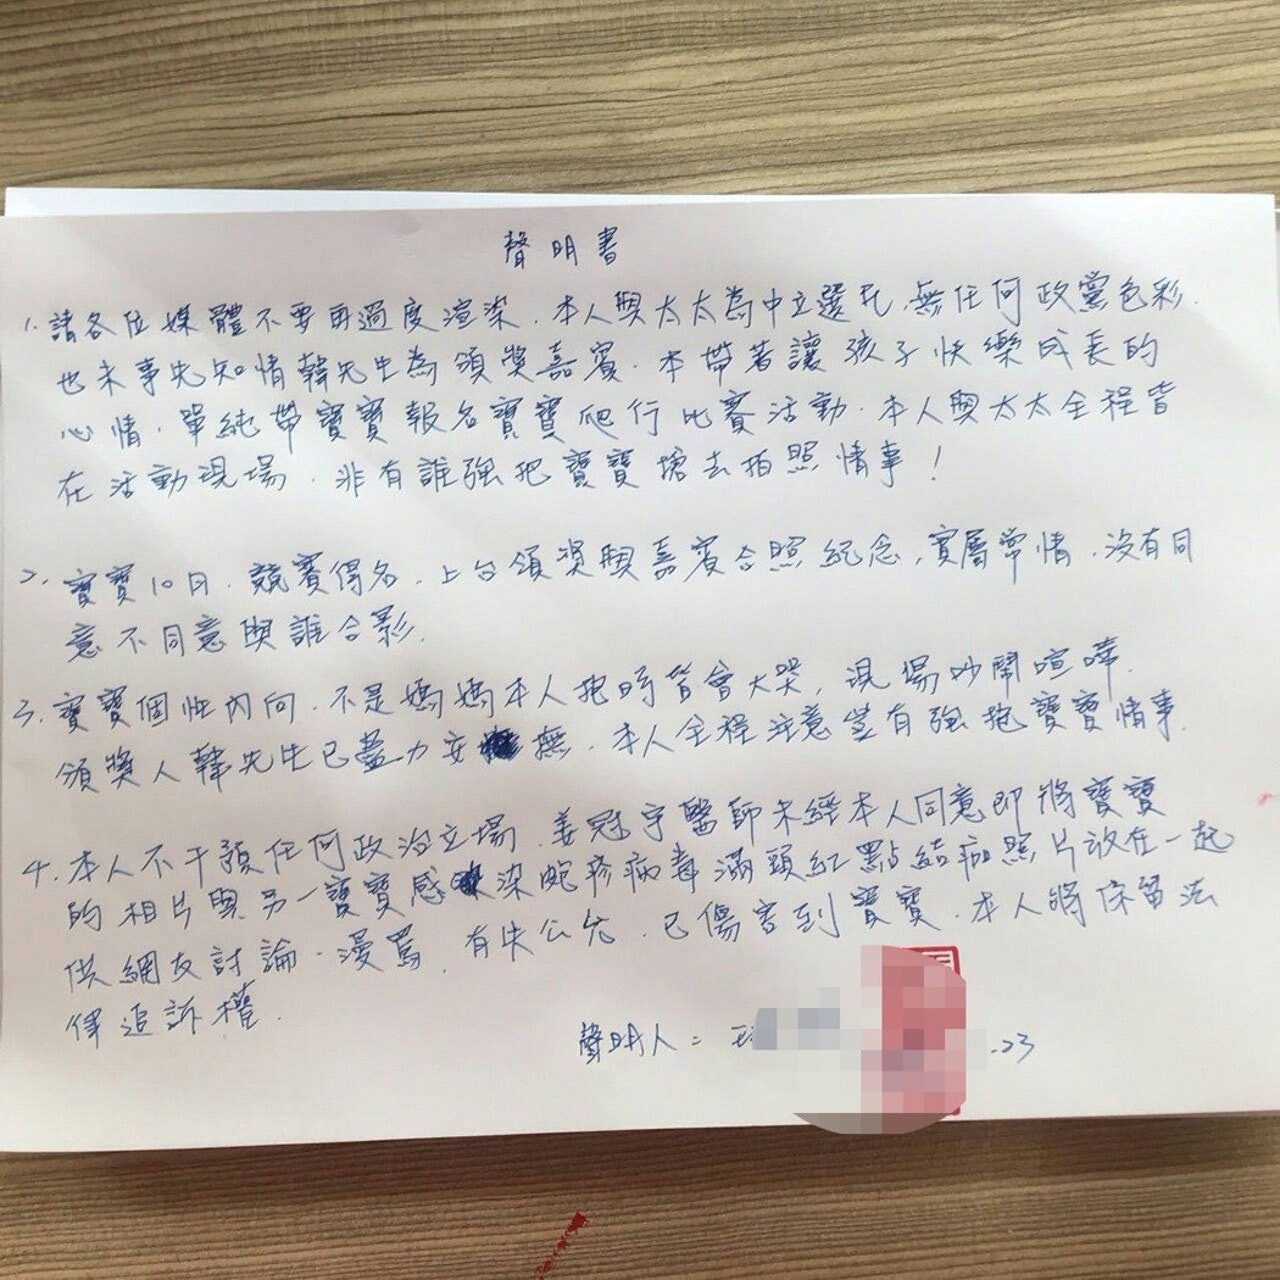 聲明書
1. 請各位媒體不要再過度渲染.本人與太太為中立選民.無任何政黨色彩.
也未事先知情韓先生為頒獎嘉賓.本帶著讓孩子快樂成長的
心情.單純帶寶寶報名寶寶爬行比賽活動.本人與太太全程皆
在活動現場.非有誰強把寶寶搶去拍照情事!
2. 寶寶10月.競賽得名.上台領獎與嘉賓合照紀念,實屬常情.沒有同
意不同意與誰合影.
3. 寶寶個性內向.不是媽媽本人抱時皆會大哭,現場吵鬧喧嘩.
頒獎人韓先生已盡力安撫.本人全程注意豈有強抱寶寶情事.
4. 本人不干預任何政治立場.姜冠宇醫師未經本人同意即將寶寶
的相片與另一寶寶感染皰疹病毒滿頭紅點結痂照片放在一起
供網友討論.漫罵.有失公允.已傷害到寶寶.本人將保留法
律追訴權.
聲明人: .23